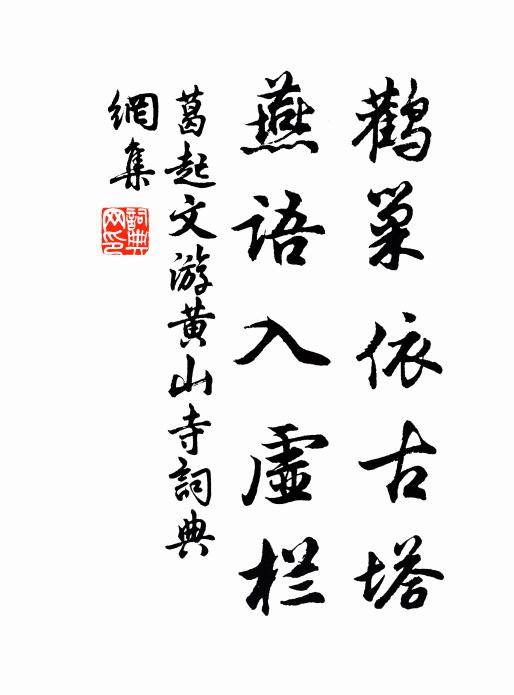 鹳巢依古塔
燕語入虛栏
葛起文游黄山寺詞典
網集
詞典
网印